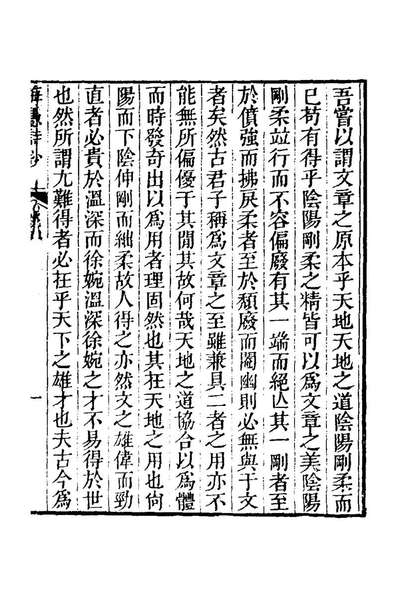 吾嘗以謂文章之原本乎天地天地之道陰陽剛柔而
巳苟有得乎陰陽剛柔之精皆可以爲文章之美陰陽
剛柔竝行而不容偏廢有其一端而絕亾其一剛者至
於僨強而拂戾柔者至於頹廢而閹幽則必無與于文
者矣然古君子稱爲文章之至雖兼具二者之用亦不
能無所偏優于其閒其故何哉天地之道協合以爲體
而時發奇出以爲用者理固然也其在天地之用也尙
陽而下陰伸剛而絀柔故人得之亦然文之雄偉而勁
直者必貴於溫深而徐婉溫深徐婉之才不易得於世
也然所謂尤難得者必在乎天下之雄才也夫古今爲
海愚詩鈔
一